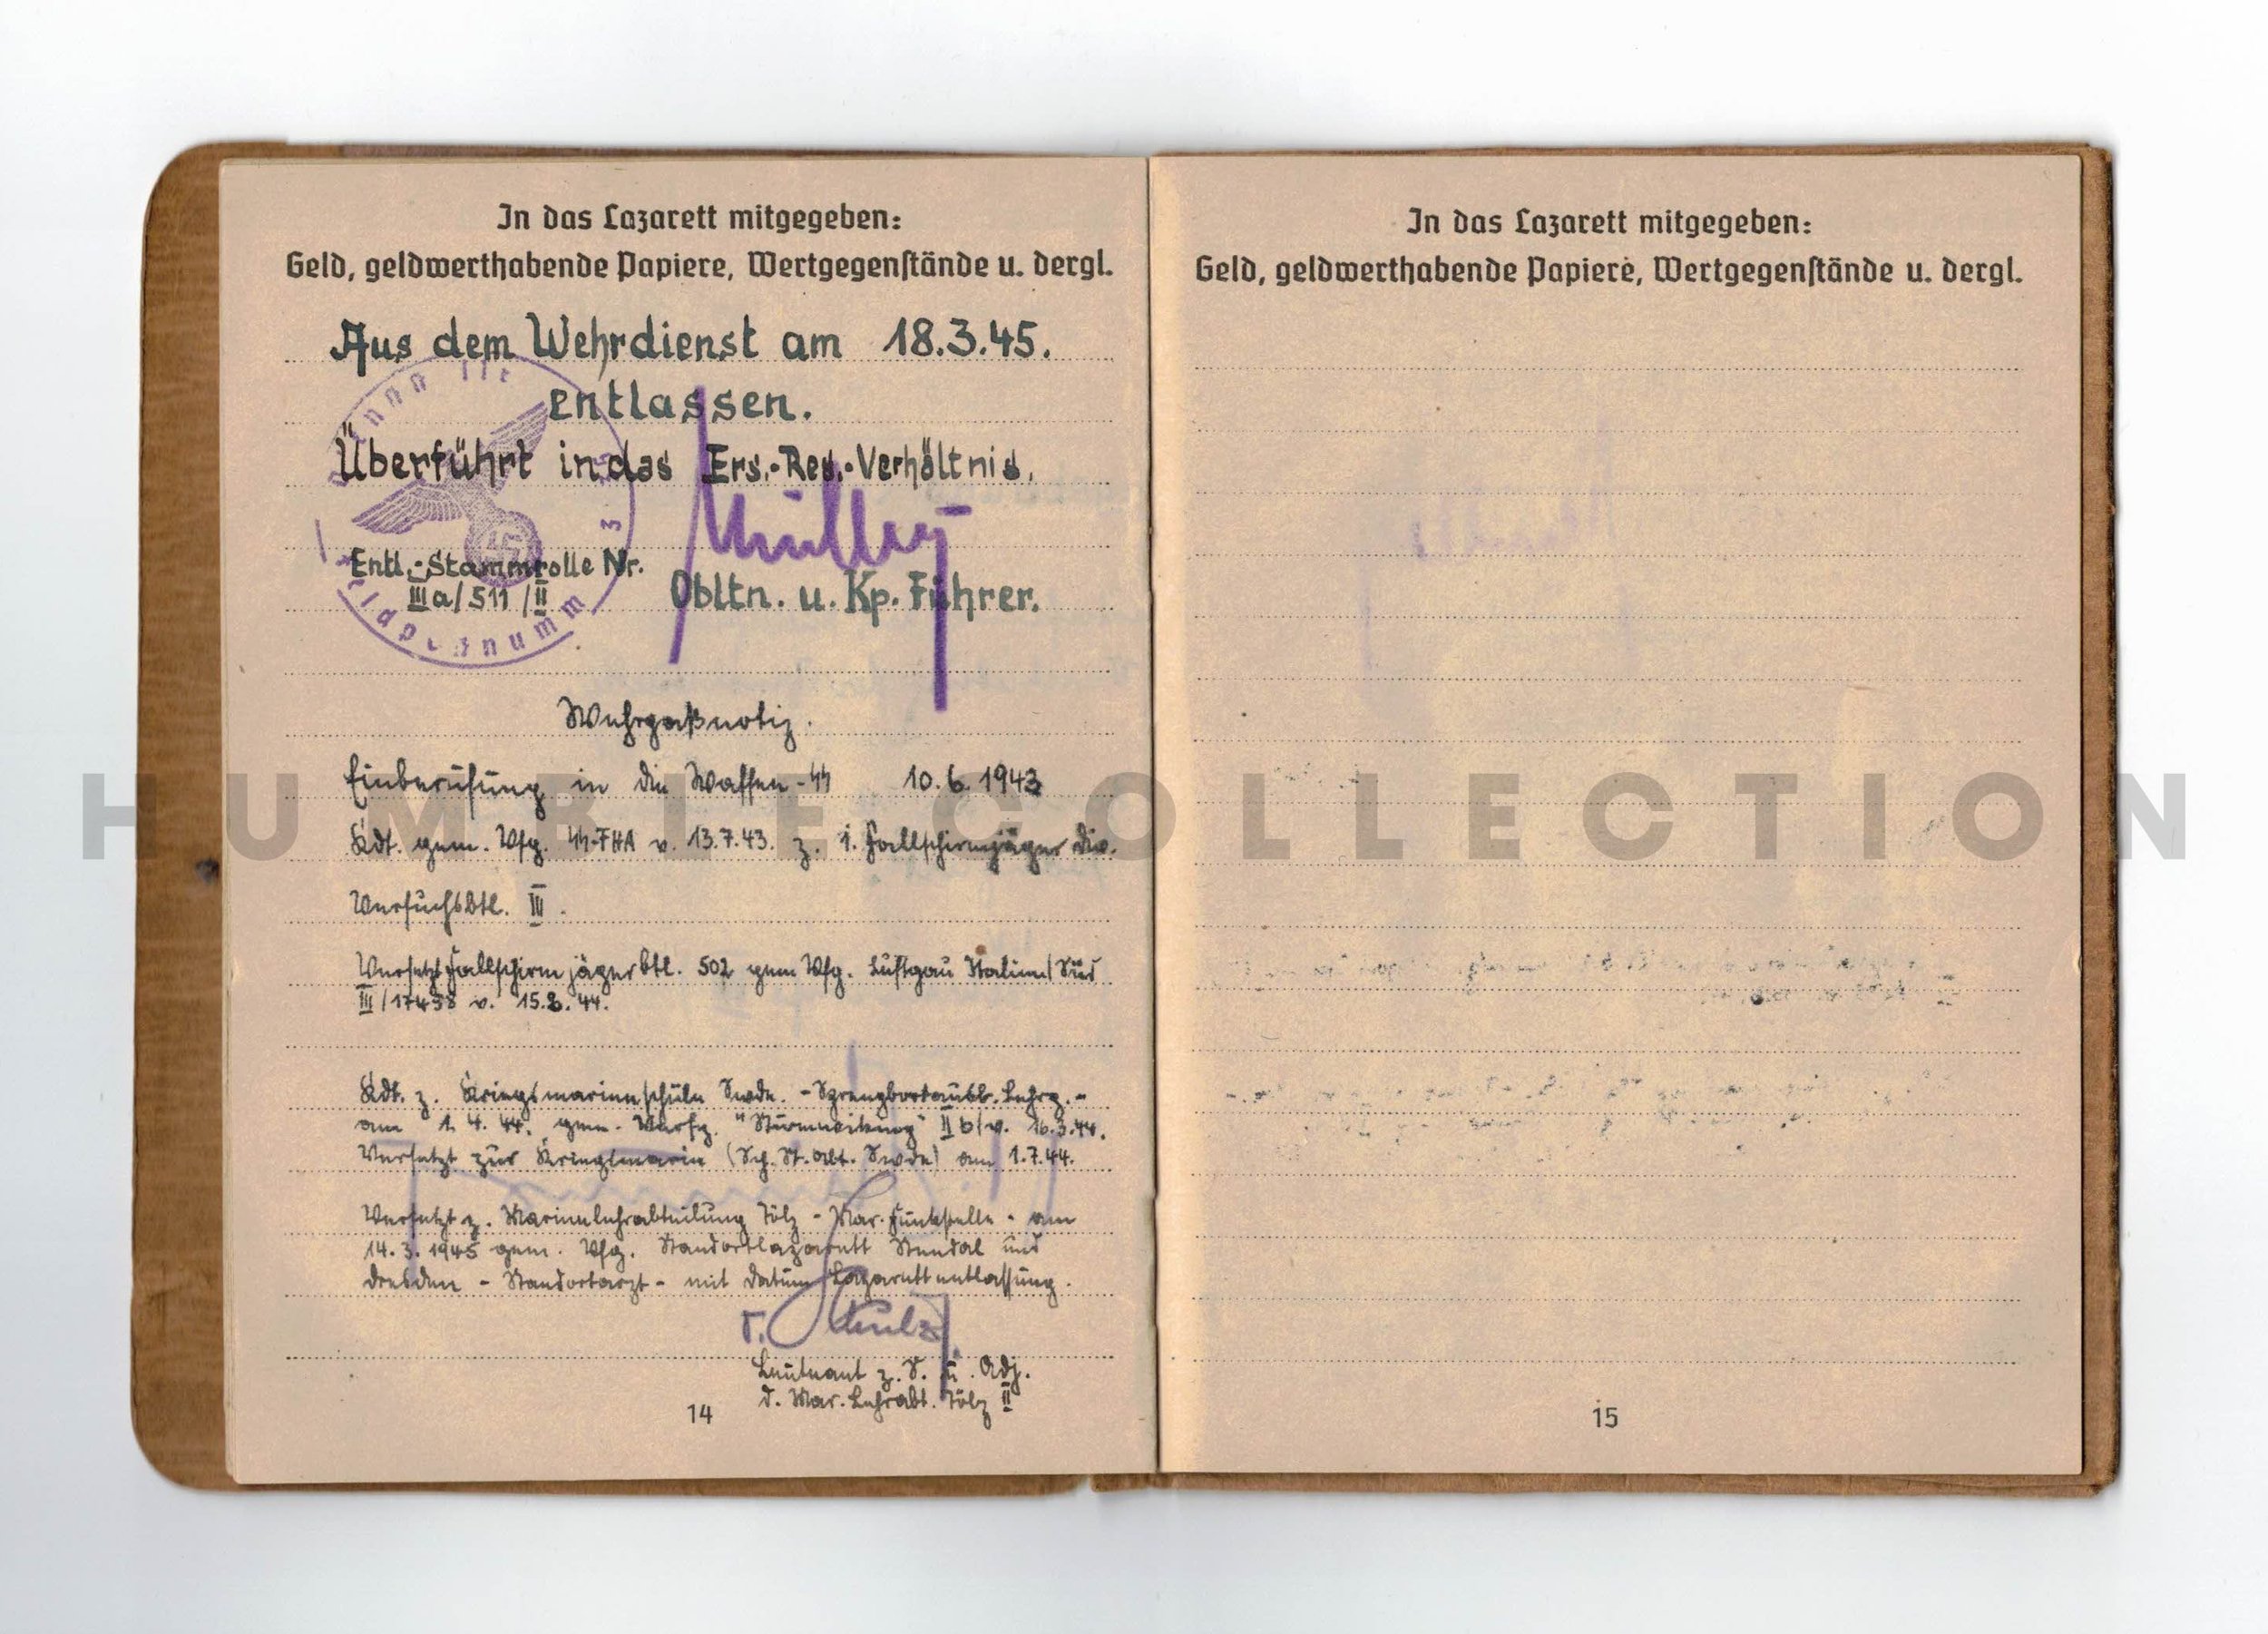 In das Lazarett mitgegeben:
Geld, geldwerthabende Papiere, Wertgegenstände u. dergl.
Aus dem Wehrdienst am 18.3.45.
entlassen.
Überführt in das Ers.-Res.-Verhältnis.
Müller
Entl.-Stammrolle Nr.
IIIa/511/II
Obltn. u. Kp. Führer.
Wehrpaßnotiz.
Einberufung in die Waffen-SS 10.6.1943
Kdt. gem. Vfg. SS-FHA v. 13.7.43. z. 1. Fallschirmjäger Div.
Versuchsbtl. III.
Versetzt Fallschirmjägerbtl. 502 gem Vfg. Luftgau Italien/Süd
III/17458 v. 15.2.44.
Kdt. z. Kriegsmarineschule Swde. - Sprengbootausb. Lehrg. -
am 1. 4. 44. gem. Verfg. II b/v. 16.3.44.
Versetzt zur Kriegsmarine (Sch. St. Abt. Swde) am 1.7.44.
Versetzt z. Marinelehrabteilung Tölz - Mar. Funkstelle - am
14.3.1945 gem. Vfg. Standortlazarett Stendal und
Dresden - Standortarzt - mit Datum Lazarettentlassung.
Leutnant z. S. u. Adj.
d. Mar. Lehrabt. Tölz II
14
In das Lazarett mitgegeben:
Geld, geldwerthabende Papiere, Wertgegenstände u. dergl.
15
HUMBLE COLLECTION